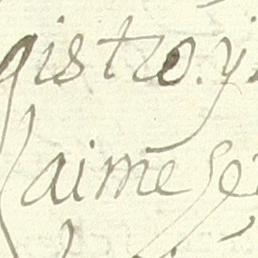 gistro. y
Jaime Se